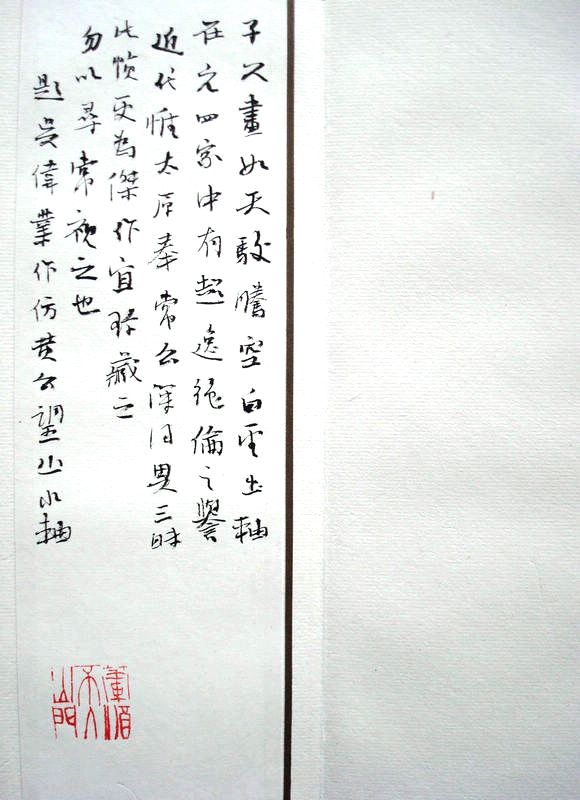 子久畫如天駿騰空白雲出軸
在元四家中有超逸絕倫之譽
近代惟太原奉常公深得其三昧
此幀更為傑作宜珍藏之
勿以尋常視之也
題吳偉業作仿黃公望山水軸